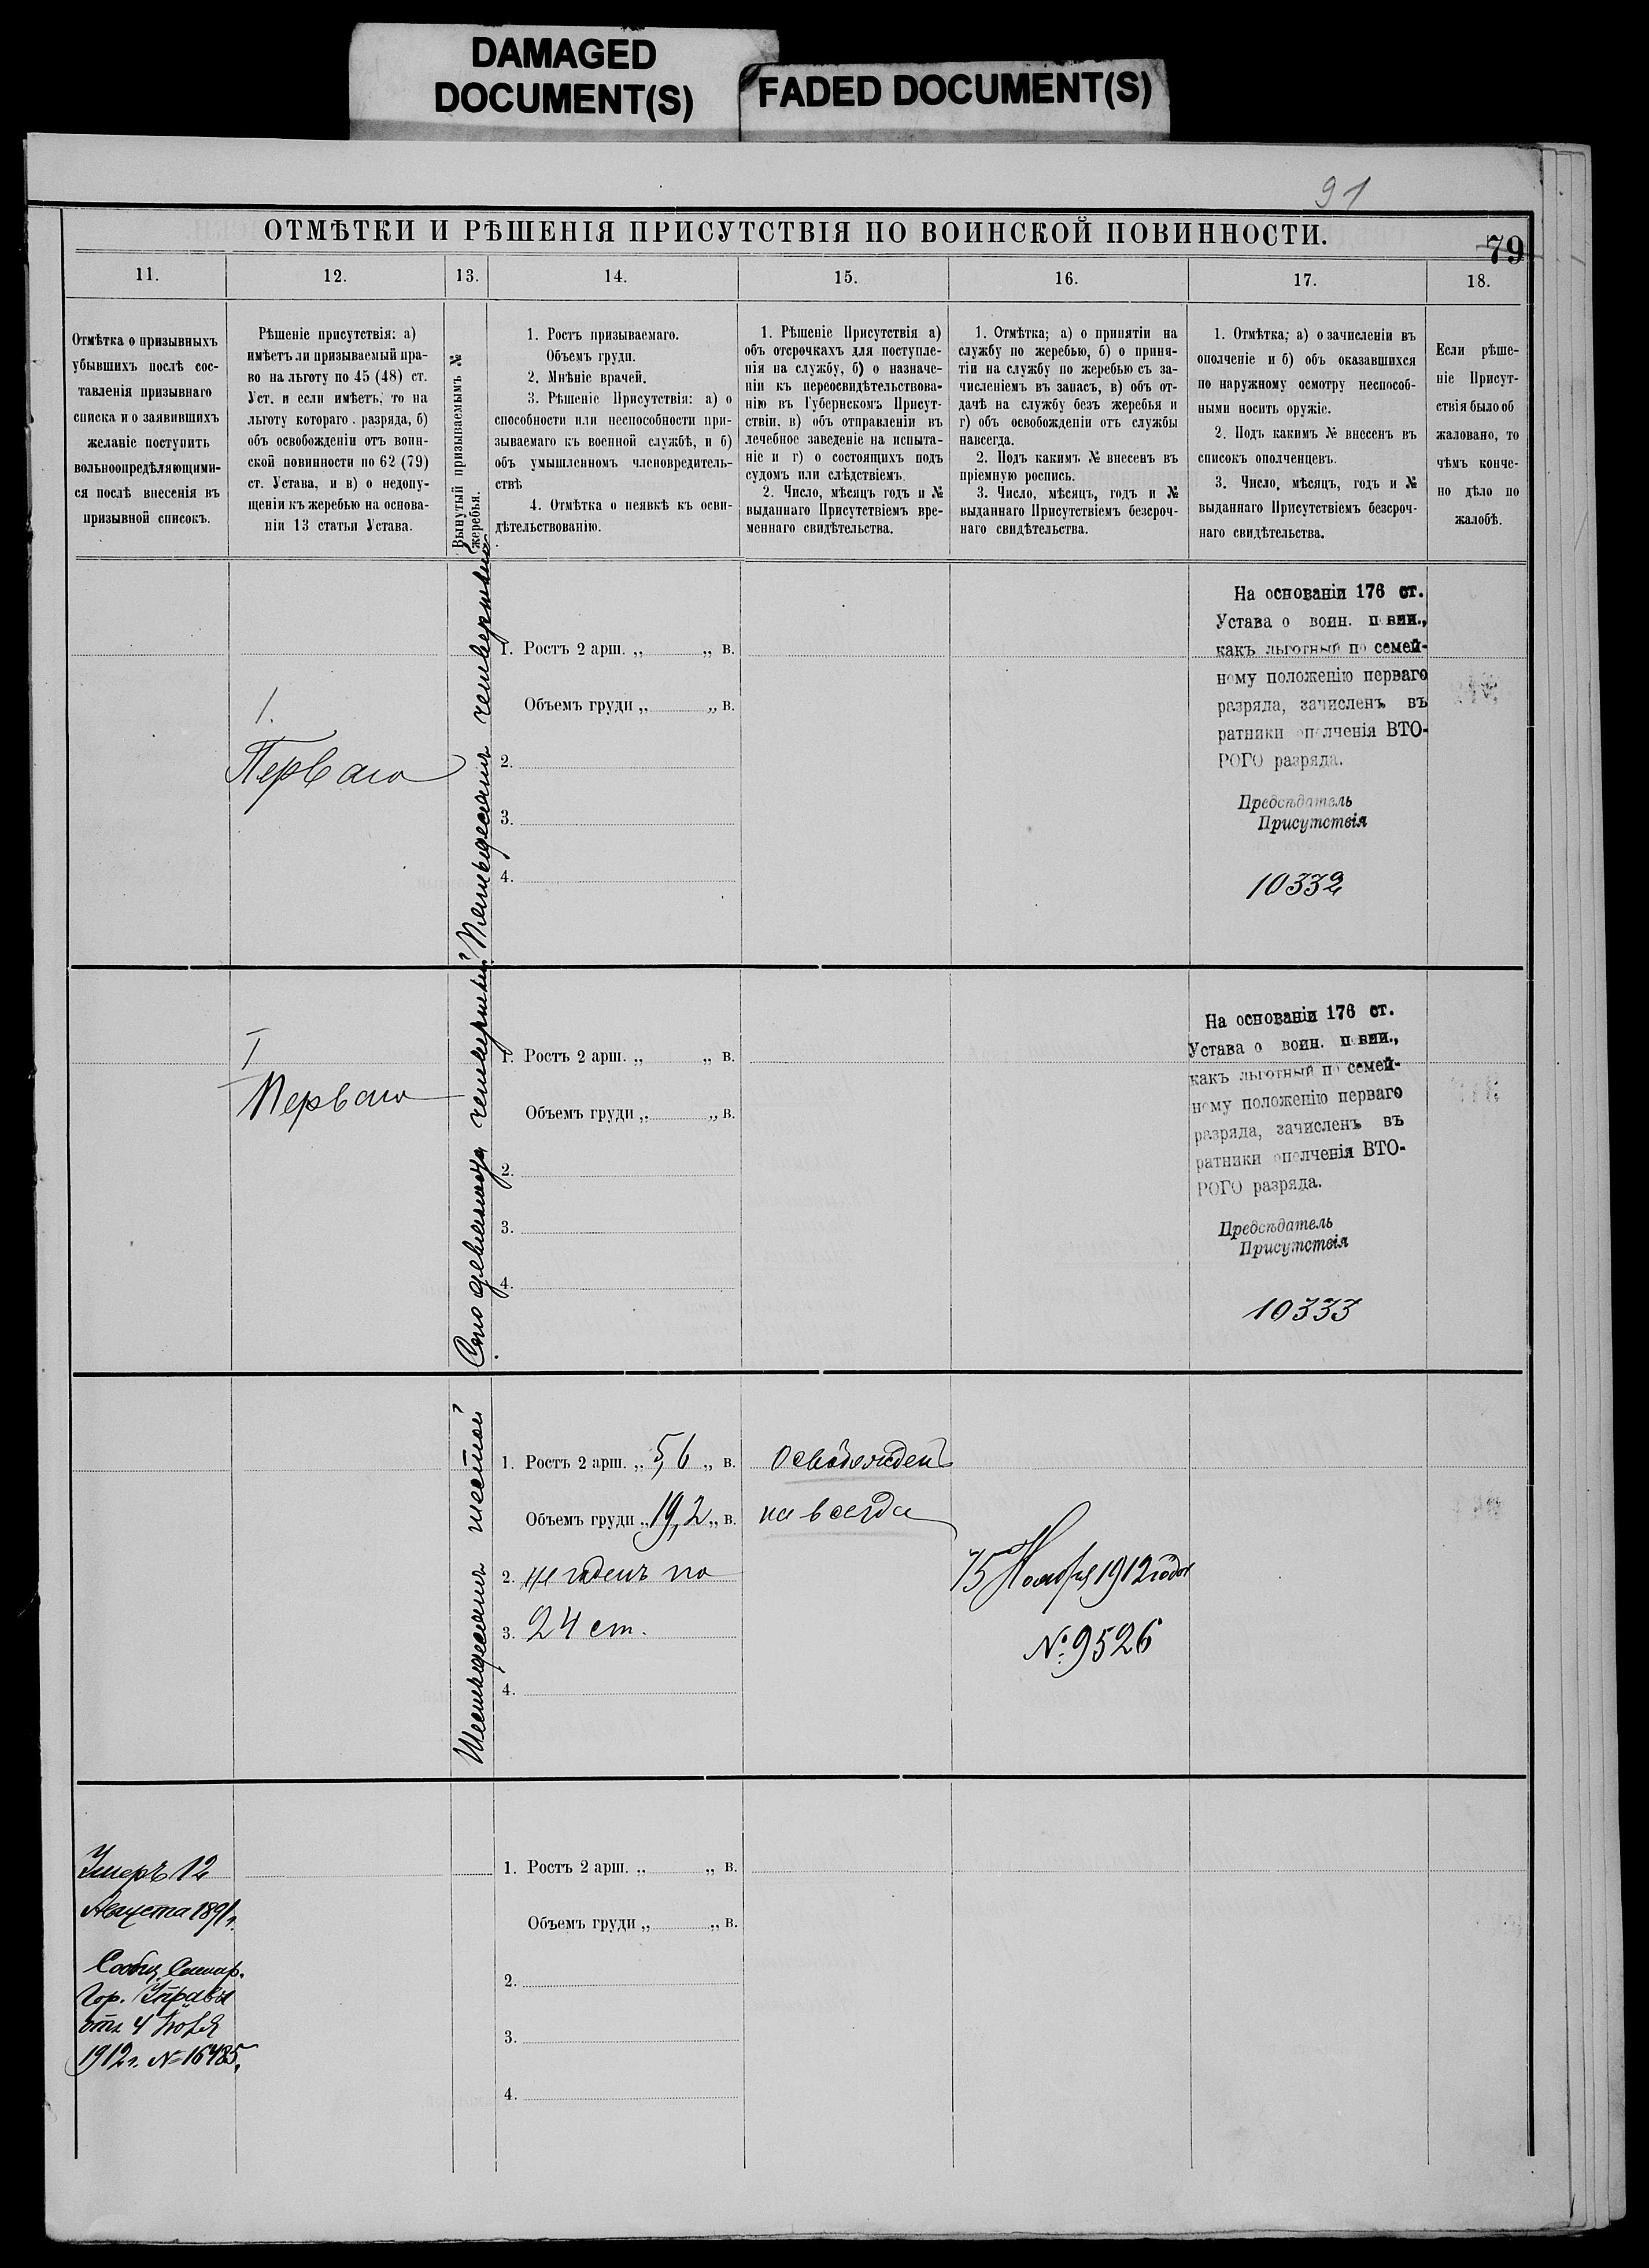 DAMAGED
DOCUMENT(S)
FADED DOCUMENT(S)
91
ОТМѢТКИ И РѢШЕНІЯ ПРИСУТСТВІЯ ПО ВОИНСКОЙ ПОВИННОСТИ.
79
11.
12.
13.
14.
15.
16.
17.
18.
Отмѣтка о призывныхъ
убывшихъ послѣ сос-
тавленія призывнаго
списка и о заявившихъ
желаніе поступить
вольноопредѣляющими-
ся послѣ внесенія въ
призывной списокъ.
Рѣшеніе присутствія: а)
имѣетъ ли призываемый пра-
во на льготу по 45 (48) ст.
Уст. и если имѣетъ, то на
льготу котораго . разряда, б)
объ освобожденіи отъ воин-
ской повинности по 62 (79)
ст. Устава, и в) о недопу-
щеніи къ жеребью на основа-
ніи 13 статьи Устава.
Вынутый призываемымъ №
жеребья.
1. Ростъ призываемаго.
Объемъ груди.
2. Мнѣніе врачей.
3. Рѣшеніе Присутствія: а) о
способности или неспособности при-
зываемаго къ военной службѣ, и б)
объ умышленномъ членовредитель-
ствѣ
4. Отмѣтка о неявкѣ къ осви-
дѣтельствованію.
1. Рѣшеніе Присутствія а)
объ отсрочкахъ для поступле-
нія на службу, б) о назначе-
ніи къ переосвидѣтельствова-
нію въ Губернскомъ Присут-
ствіи. в) объ отправленіи въ
лечебное заведеніе на испыта-
ніе и г) о состоящихъ подъ
судомъ или слѣдствіемъ.
2. Число, мѣсяцъ годъ и №
выданнаго Присутствіемъ вре-
меннаго свидѣтельства.
1. Отмѣтка; а) о принятіи на
службу по жеребью, б) о приня-
тіи на службу по жеребью съ за-
численіемъ въ запасъ, в) объ от-
дачѣ на службу безъ жеребья и
г) объ освобожденіи отъ службы
навсегда.
2. Подъ какимъ № внесенъ въ
пріемную роспись.
3. Число, мѣсяцъ, годъ и №
выданнаго Присутствіемъ безсроч-
наго свидѣтельства.
1. Отмѣтка; а) о зачисленіи въ
ополченіе и б) объ оказавшихся
по наружному осмотру неспособ-
ными носить оружіе.
2. Подъ какимъ № внесенъ въ
списокъ ополченцевъ.
3. Число, мѣсяцъ, годъ и №
выданнаго Присутствіемъ безсроч-
наго свидѣтельства.
Если рѣше-
ніе Присут-
ствія было об
жаловано, то
чѣмъ конче-
но дѣло по
жалобѣ.
1.
Перваго
Пятьдесятъ четвертый
1. Ростъ 2 арш. „ „ в.
Объемъ груди „ „ в.
2.
3.
4.
На основаніи 176 ст.
Устава о воин. повин.,
какъ льготный по семей-
ному положенію перваго
разряда, зачисленъ въ
ратники ополченія ВТО-
РОГО разряда.
Предсѣдатель
Присутствія
10332
I
Перваго
Сто девяносто четвертый
1. Ростъ 2 арш. „ „ в.
Объемъ груди „ „ в.
2.
3.
4.
На основаніи 176 ст.
Устава о воин. повин.,
какъ льготный по семей-
ному положенію перваго
разряда, зачисленъ въ
ратники ополченія ВТО-
РОГО разряда.
Предсѣдатель
Присутствія
10333
Шестьдесятъ шестой
1. Ростъ 2 арш. „ 5,6 „ в.
Объемъ груди „ 19,2 „ в.
2. не годенъ по
3. 24 ст.
4.
Освобожденъ
на всегда
15 Ноября 1912 года
№ 9526
Умеръ 12
Августа 1891 г.
Сообщ. Самар.
Гор. Управы
отъ 4
1912 г. № 16485.
1. Ростъ 2 арш. „ „ в.
Объемъ груди „ „ в.
2.
3.
4.